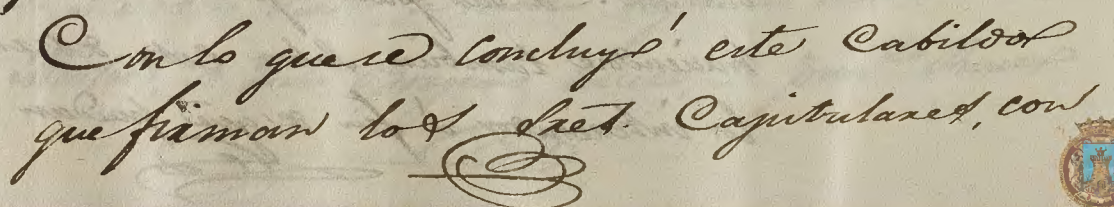 Con lo que se concluyó este Cabildo
que firman los Sres. Capitulares, con